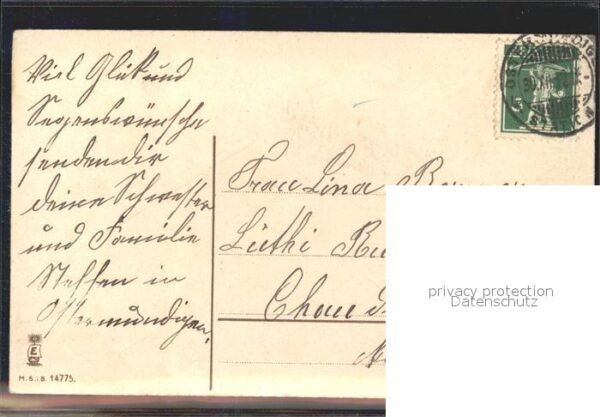 Viel Glük und
Segenswünsche
senden dir
deine Schwester
und Familie
Steffen in
Ostermundigen.
Frau Lina
Lüthi
Chaud
M. S. i. B. 14775.
5
privacy protection
Datenschutz